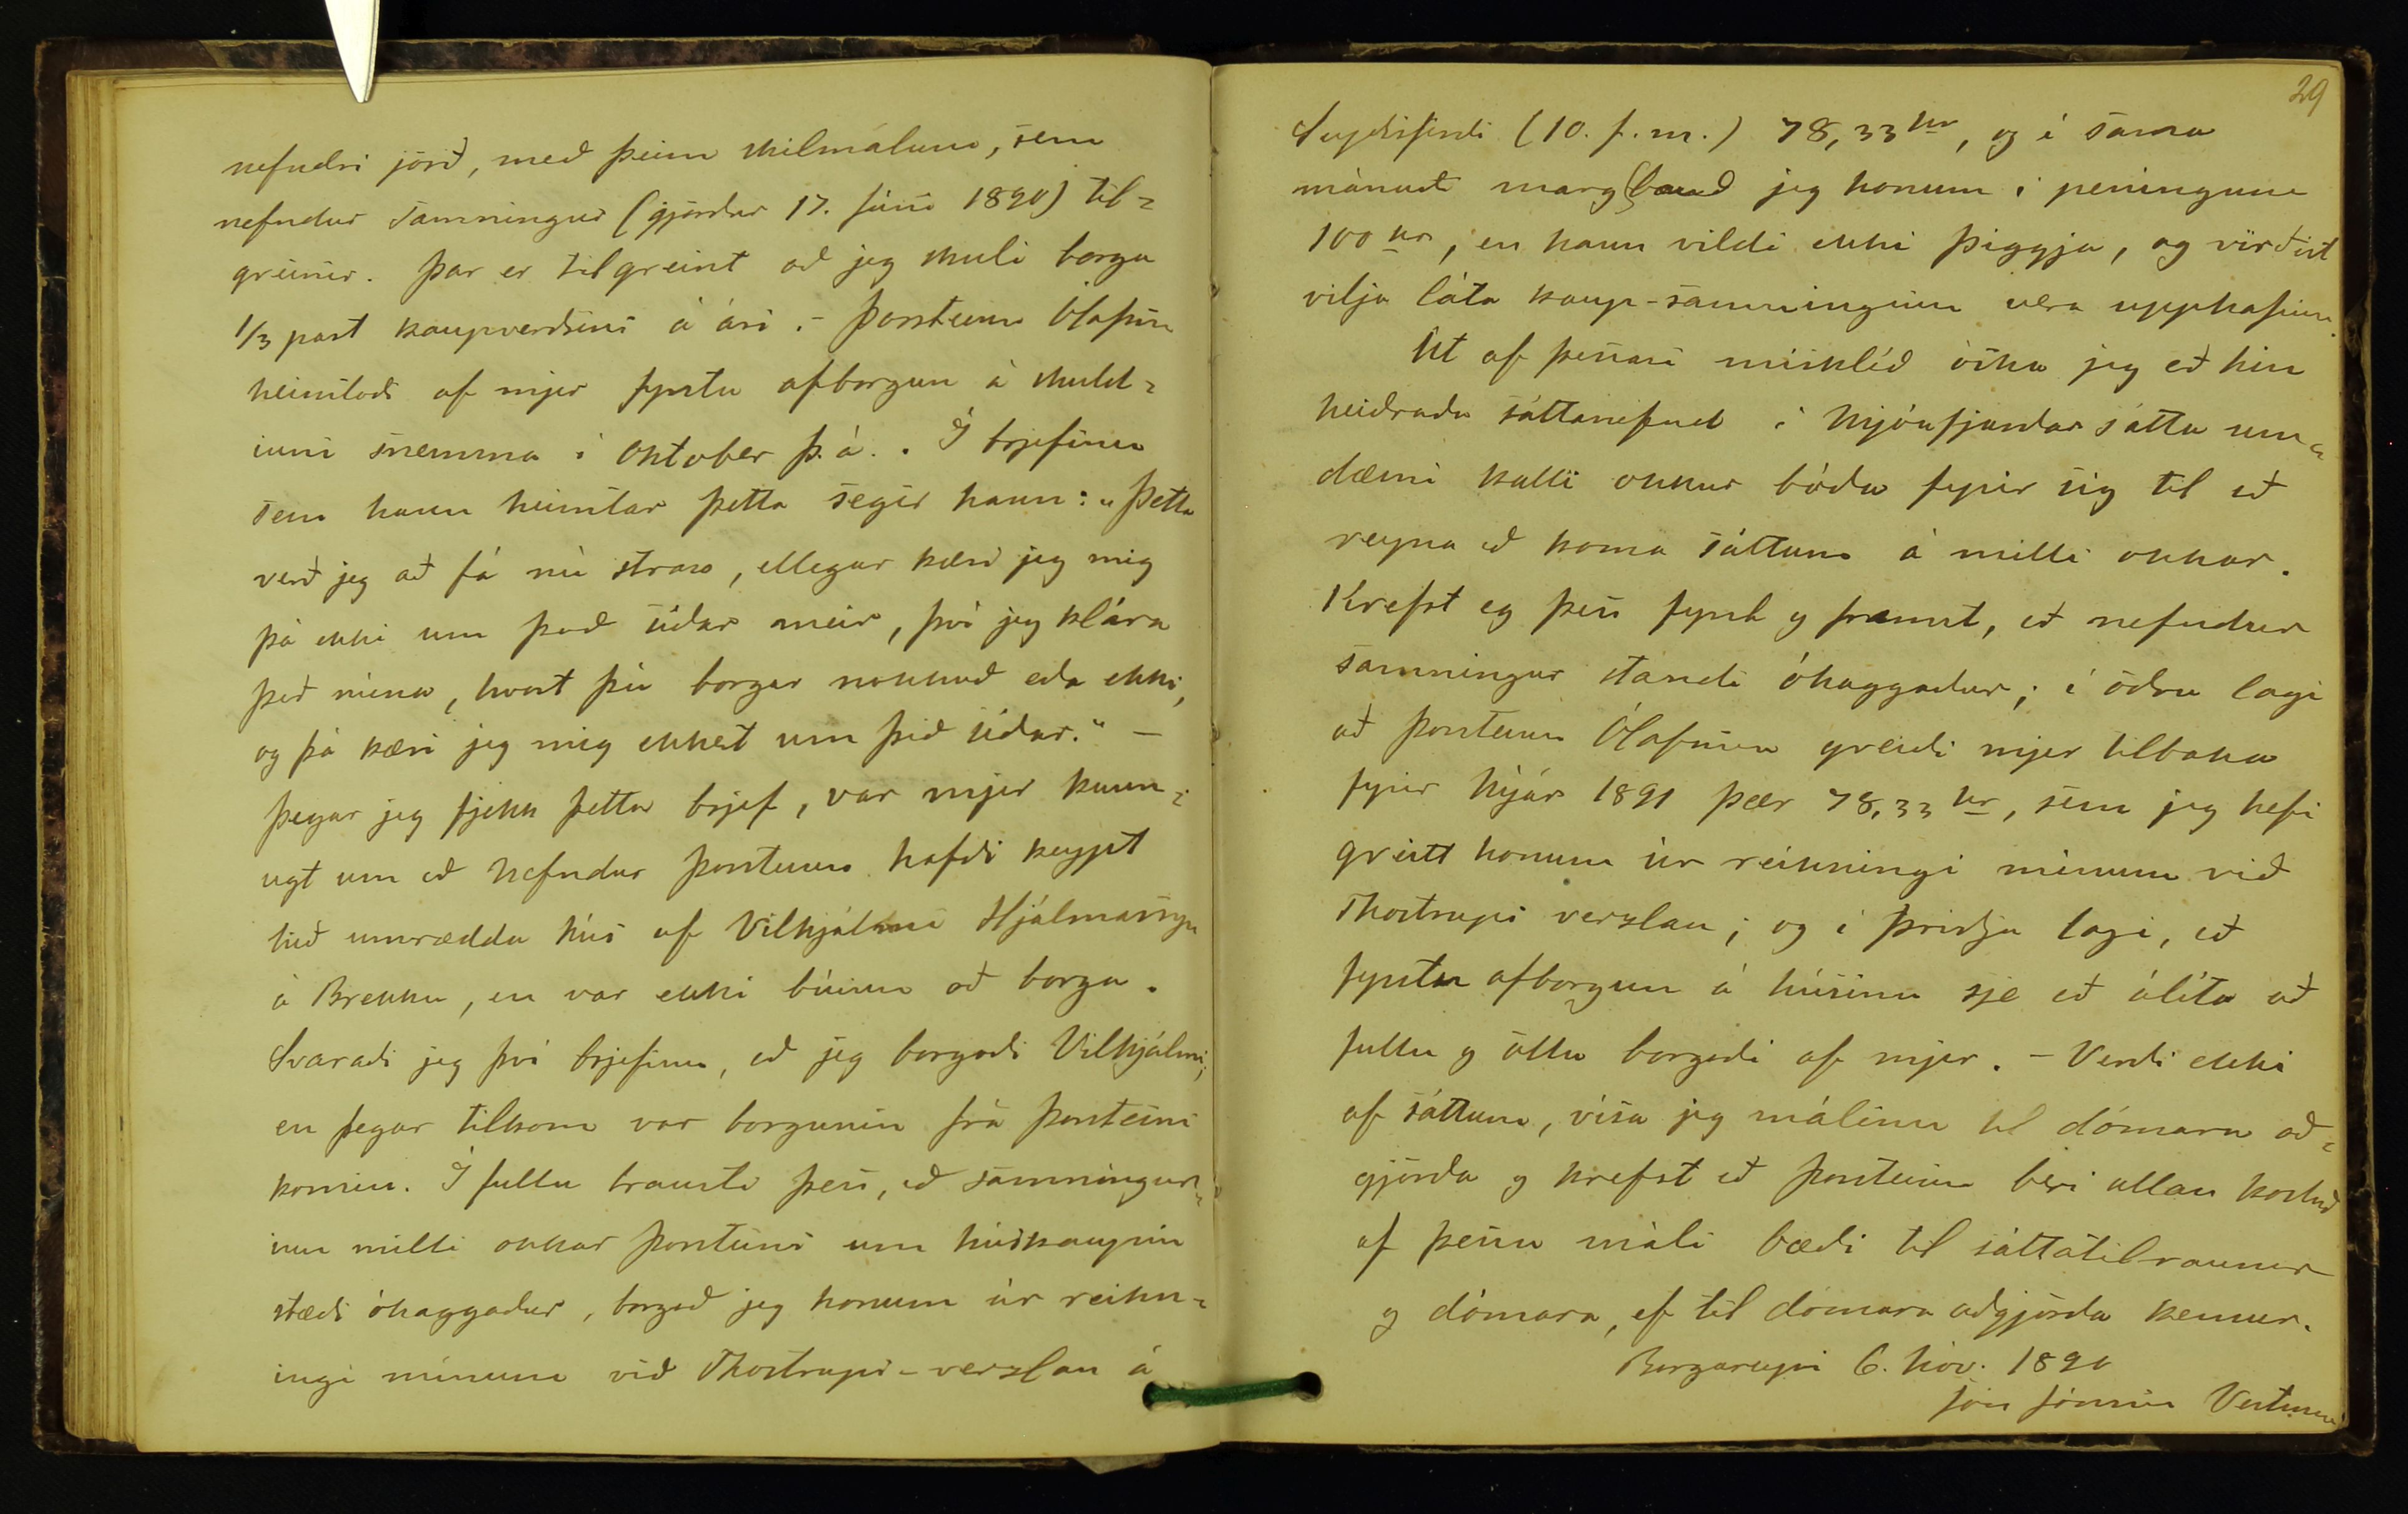 nefndri jörð, með þeim skilmálum, sem
nefndur samningur (gjörður 17. júní 1890) til-
greinir. Þar er tilgreint að jeg skuli borga
1/3 part kaupverðsins á ári. - Þorsteinn Ólafsson
heimtaði af mjer fyrstu afborgun á skuld-
inni snemma í október þ.á. . Í brjefinu
sem hann heimtar þetta segir hann: „Þetta
verð jeg að fá nú strax, ellegar kæri jeg mig
þá ekki um það síðar meir, því jeg klára
það núna, hvort þú borgar nokkuð eða ekki,
og þá kæri jeg mig ekkert um það síðar.“ —
Þegar jeg fjekk þetta brjef, var mjer kunn-
ugt um að nefndur Þorsteinn hafði keypt
hið umrædda hús af Vilhjálmi Hjálmarssyni
á Brekku, en var ekki búinn að borga.
Svaraði jeg því brjefinu, að jeg borgaði Vilhjálmi;
en þegar tilkom var borgunin frá Þorsteini
komin. Í fullu trausti þess, að samningur-
inn milli okkar Þorsteins um húskaupin
stæði óhaggaður, borgað jeg honum úr reikn-
ingi mínum við Thostrups-verzlan á
29
Seyðisfirði (10. f.m.) 78,33 kr, og í sama
mánuði marg bauð jeg honum í peningum
100 kr, en hann vildi ekki þiggja, og virðist
vilja láta kaup-samninginn vera upphafinn.
Út af þessari misklíð óska jeg að hin
heiðraða sáttanefnd í Mjóafjarðar sátta um-
dæmi kalli okkur báða fyrir sig til að
reyna að koma sáttum á milli okkar.
Krefst eg þess fyrst og fremst, að nefndur
samningur standi óhaggaður; í öðru lagi
að Þorsteinn Ólafsson greiði mjer tilbaka
fyrir Nýár 1891 þær 78,33 kr, sem jeg hefi
greitt honum úr reikningi mínum við
Thostrups verzlan; og í þriðja lagi, að
fyrsta afborgun á húsinu sje að álíta að
fullu og öllu borgaði af mjer. - Verði ekki
af sáttum, vísa jeg málinu til dómara að-
gjörða og krefst að Þorsteinn beri allan kostnað
af þessu máli bæði til sáttatilraunar
og dómara, ef til dómara aðgjörða kemur.
Borgareyri 6. Nóv. 1890
Jón Jónsson Vestmann